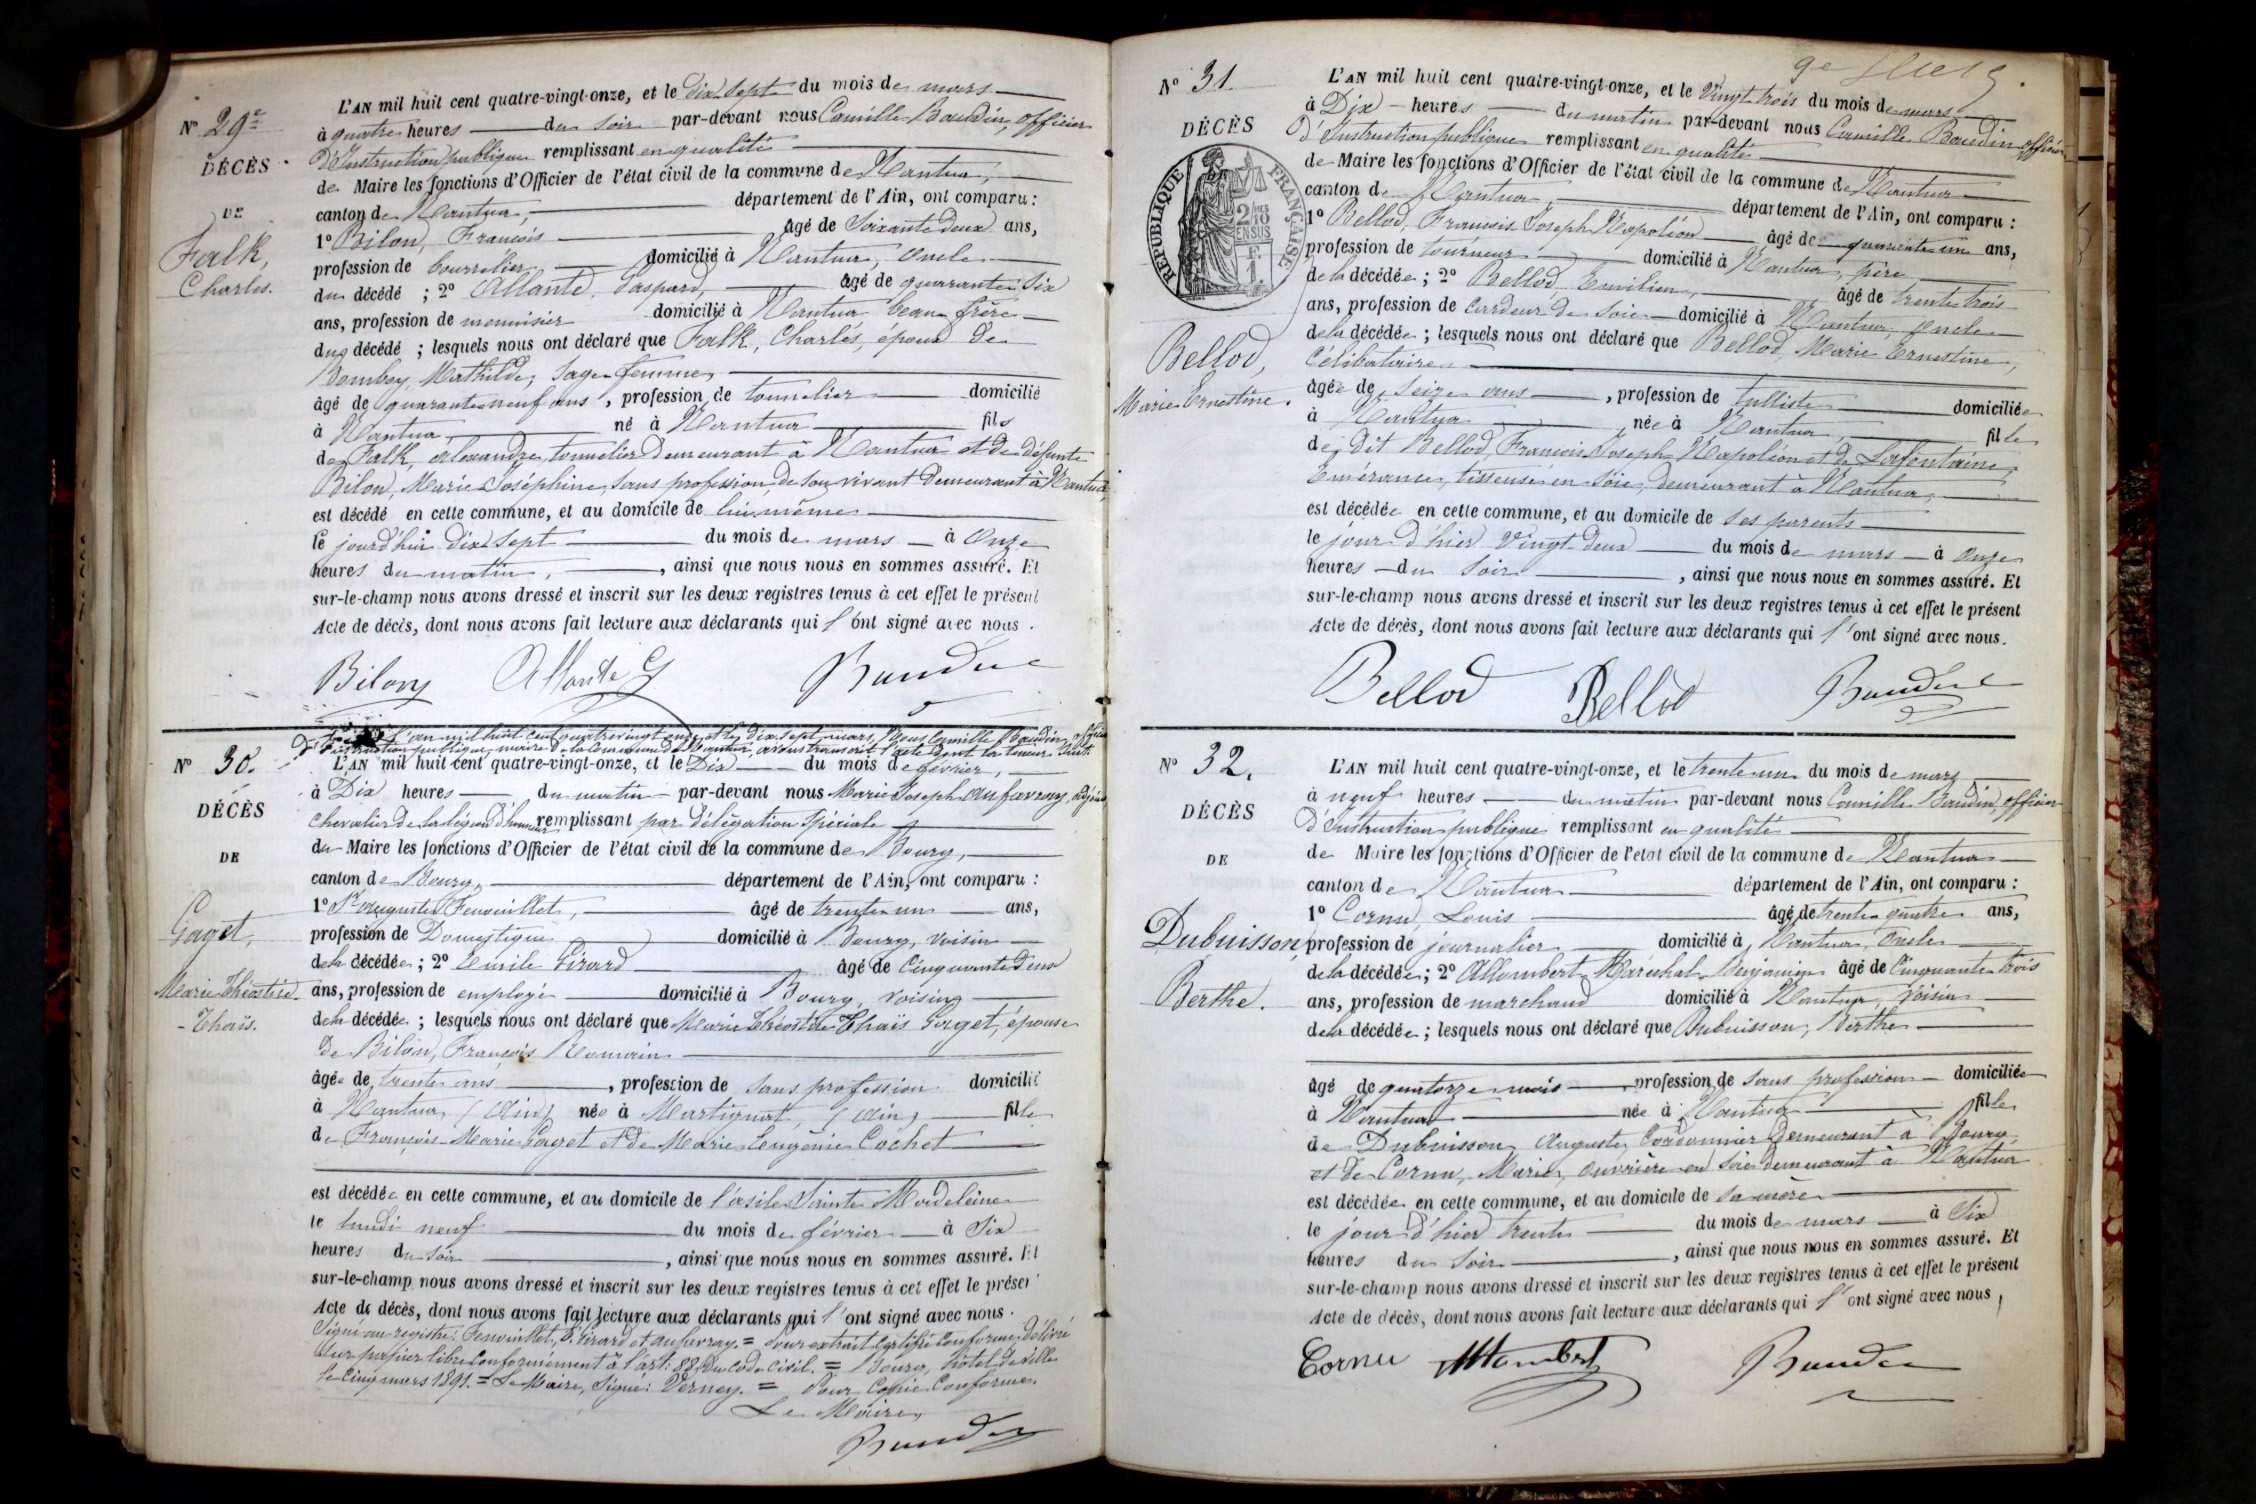 Nº 29e
DÉCÈS
DE
Falk,
Charles.
L'AN mil huit cent quatre-vingt-onze, et le dix-sept du mois de mars
à quatre heures du soir par-devant nous Camille Baudin, officier
d'Instruction publique remplissant en qualité
de Maire les fonctions d'Officier de l'état civil de la commune de Nantua,
canton de Nantua, département de l'Ain, ont comparu :
1º Bilon, François âgé de soixante deux ans,
profession de bourrelier domicilié à Nantua, oncle
du décédé ; 2º Allante, Gaspard, âgé de quarante six
ans, profession de menuisier domicilié à Nantua beau frère
du décédé ; lesquels nous ont déclaré que Falk, Charles, époux de
Bombay, Mathilde, sage-femme,
âgé de quarante neuf ans, profession de tonnelier domicilié
à Nantua, né à Nantua fils
de Falk, Alexandre, tonnelier demeurant à Nantua et de défunte
Bilon, Marie Joséphine, sans profession, de son vivant demeurant à Nantua,
est décédé en cette commune, et au domicile de lui-même
le jourd'hui dix sept du mois de mars à onze
heures du matin, , ainsi que nous nous en sommes assuré. Et
sur-le-champ nous avons dressé et inscrit sur les deux registres tenus à cet effet le présent
Acte de décès, dont nous avons fait lecture aux déclarants qui l'ont signé avec nous.
Bilon Allante G Baudin
Nº 30.
DÉCÈS
DE
Gaget,
Marie Théostide
-Thaïs.
l'an mil huit cent quatre vingt onze et le dix-sept mars, Nous Camille Baudin, officier
d'Instruction publique, maire de la commune de Nantua, avons transcrit l'acte dont la teneur suit:
L'AN mil huit cent quatre-vingt-onze, et le Dix du mois de février,
à Dix heures du matin par-devant nous Marie Joseph Aufavray, adjoint
chevalier de la légion d'honneur remplissant par délégation spéciale
du Maire les fonctions d'Officier de l'état civil de la commune de Bourg,
canton de Bourg, département de l'Ain, ont comparu :
1º Sr Auguste Fenouillet, âgé de trente un ans,
profession de Domestique domicilié à Bourg, voisin
de la décédée ; 2º Emile Girard âgé de cinquante deux
ans, profession de employé domicilié à Bourg, voisin
de la décédée ; lesquels nous ont déclaré que Marie Théostide Thaïs Gaget, épouse
de Bilon, François Romain
âgée de trente ans , profession de sans profession domicilié
à Nantua (Ain) née à Martignat (Ain) fille
de François Marie Gaget et de Marie Eugénie Cochet
est décédée en cette commune, et au domicile de l'asile Sainte Madeleine
le lundi neuf du mois de février à Six
heures du soir , ainsi que nous nous en sommes assuré. Et
sur-le-champ nous avons dressé et inscrit sur les deux registres tenus à cet effet le présent
Acte de décès, dont nous avons fait lecture aux déclarants qui l'ont signé avec nous.
Signé au registre: Fenouillet, E. Girard et Aufavray. = Pour extrait certifié conforme délivré
sur papier libre conformément à l'art: 88 du code civil. = Bourg, hôtel de ville
le cinq mars 1891. = Le Maire, signé: Verney. = Pour copie conforme.
Le Maire,
Baudin
Nº 31.
DÉCÈS
RÉPUBLIQUE FRANÇAISE
Bellod,
Marie Ernestine.
L'AN mil huit cent quatre-vingt-onze, et le vingt-trois du mois de mars
à Dix heures du matin par-devant nous Camille Baudin officier
d'Instruction publique remplissant en qualité
de Maire les fonctions d'Officier de l'état civil de la commune de Nantua
canton de Nantua département de l'Ain, ont comparu :
1º Bellod, François Joseph Napoléon âgé de quarante un ans,
profession de tourneur domicilié à Nantua, père
de la décédée ; 2º Bellod, Emilien, âgé de trente trois
ans, profession de cardeur de soie domicilié à Nantua, oncle
de la décédée ; lesquels nous ont déclaré que Bellod, Marie Ernestine,
célibataire
âgée de seize ans , profession de tulliste domiciliée
à Nantua née à Nantua, fille
de dit Bellod, François Joseph Napoléon et de Lafontaine,
Emérance, tisseuse en soie, demeurant à Nantua,
est décédée en cette commune, et au domicile de ses parents
le jour d'hier vingt-deux du mois de mars à onze
heures du soir , ainsi que nous nous en sommes assuré. Et
sur-le-champ nous avons dressé et inscrit sur les deux registres tenus à cet effet le présent
Acte de décès, dont nous avons fait lecture aux déclarants qui l'ont signé avec nous.
Bellod Bellod Baudin
Nº 32.
DÉCÈS
DE
Dubuisson,
Berthe.
L'AN mil huit cent quatre-vingt-onze, et le trente un du mois de mars
à neuf heures du matin par-devant nous Camille Baudin, officier
d'Instruction publique remplissant en qualité
de Maire les fonctions d'Officier de l'état civil de la commune de Nantua
canton de Nantua département de l'Ain, ont comparu :
1º Cornu, Louis âgé de trente quatre ans,
profession de journalier domicilié à Nantua, oncle
de la décédée ; 2º Allombert Maréchal Benjamin âgé de cinquante trois
ans, profession de marchand domicilié à Nantua, voisin
de la décédée ; lesquels nous ont déclaré que Dubuisson, Berthe
âgé de quatorze mois profession de sans profession domiciliée
à Nantua née à Nantua fille
de Dubuisson, Auguste, cordonnier demeurant à Bourg,
et de Cornu, Marie, ouvrière en soie demeurant à Nantua
est décédée en cette commune, et au domicile de sa mère
le jour d'hier trente du mois de mars à Six
heures du soir , ainsi que nous nous en sommes assuré. Et
sur-le-champ nous avons dressé et inscrit sur les deux registres tenus à cet effet le présent
Acte de décès, dont nous avons fait lecture aux déclarants qui l'ont signé avec nous,
Cornu Allombert Baudin